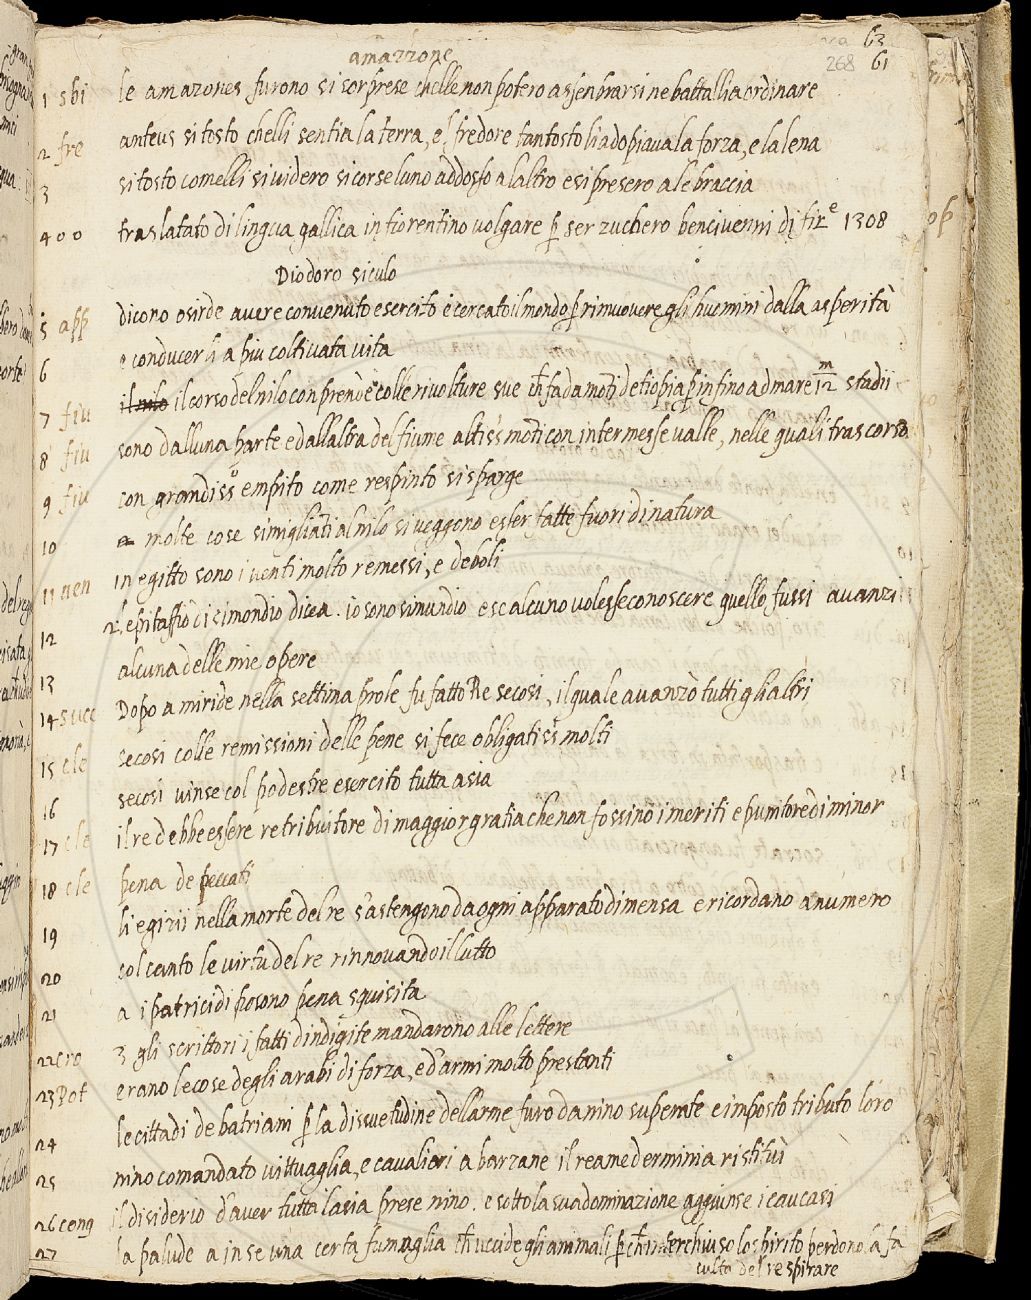 amazzone
63
268 61
1 sbi le amazones furono si sorprese chelle non potero assenbrarsi ne battallia ordinare
2 fre anteus si tosto chelli sentia la terra, e l fredore tantosto li adopiava la forza, e la lena
3 si tosto comelli si videro si corse luno addosso alaltro e si presero a le braccia
400 traslatato di lingua gallica in fiorentino volgare p ser zuchero bencivenni di firze 1308
Diodoro siculo
5 app dicono osirde avere convenuto esercito e cercato il mondo p rimuovere gli huomini dalla asperità
6 e conducerli a piu coltivata vita
7 fiu il nilo il corso del nilo conprende colle rivolture sue ch fa da moti detiopia p infino ad mare 12 m stadii
8 fiu sono dalluna parte e dallaltra del fiume altiss moti con intermesse valle, nelle quali trascorso
9 fiu con grandiss o empito come respinto si sparge
10 a molte cose simigliati al nilo si veggono esser fatte fuori di natura
11 uen in egitto sono i venti molto remessi, e deboli
12 2 epitaffio di simondio dicea . io sono simundio e se alcuno volesse conoscere quello fussi avanzi
13 alcuna delle mie opere
14 succ Dopo a miride nella settima prole fu fatto Re secosi, il quale avanzò tutti gli altri
15 cle secosi colle remissioni delle pene si fece obligatiss molti
16 secosi vinse col podestre esercito tutta asia
17 cle il re debbe essere retribuitore di maggior gratia che non fossino i meriti e punitore di minor
18 cle pena de peccati
19 li egizii nella morte del re s'astengono da ogni apparato di mensa e ricordano a numero
20 col canto le virtu del re rinnovando il lutto
21 a i patricidi posono pena squisita
22 cro 3 gli scrittori i fatti dindigite mandarono alle lettere
23 Pot erano le cose degli arabi di forza, e d'armi molto prestanti
24 le cittadi de batriani p la dissuetudine dellarme furo da nino superate e imposto tributo loro
25 nino comandato vittuaglia, e cavalieri a barzane il reame derminia ristituì
26 cong il disiderio d'aver tutta lasia prese nino . e sotto la sua dominazione aggiunse i caucasi
27 la palude a in se una certa fumaglia ch uccide gli animali p ch interchiuso lo spirito perdono la fa
culta del respirare